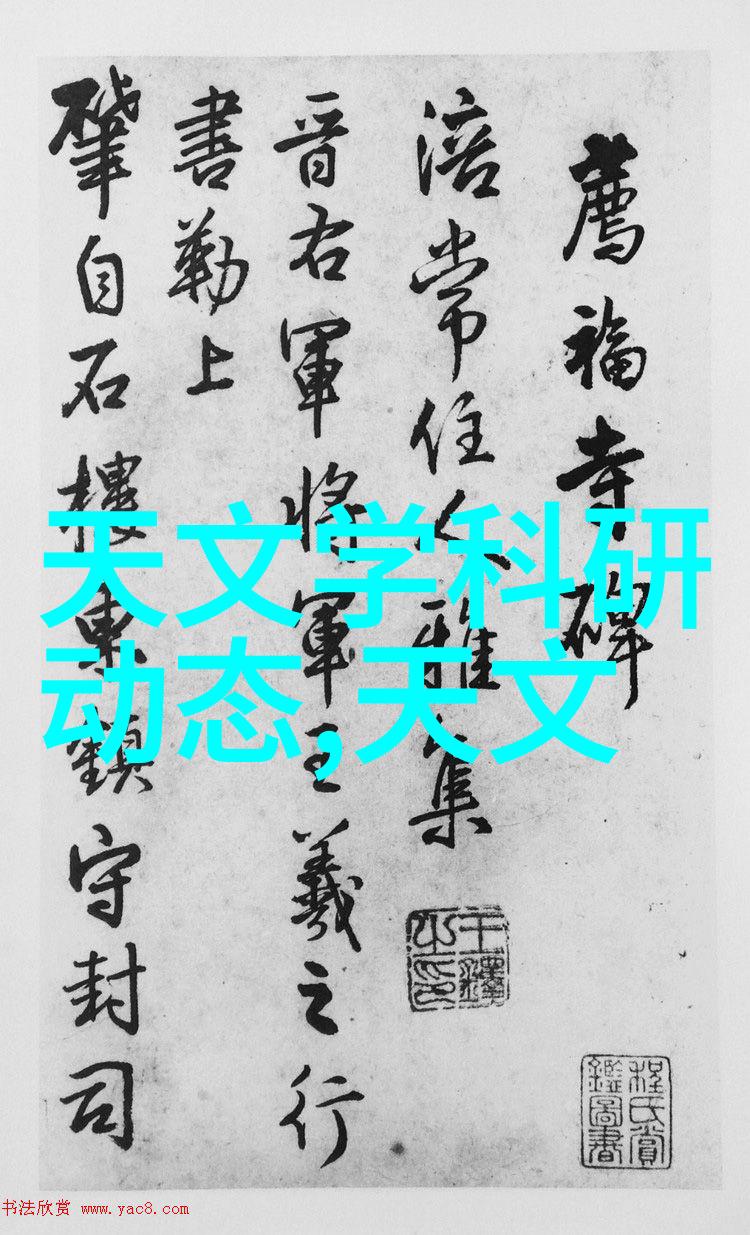 薦福寺碑
涪常住人雅集
晋右軍將軍王羲之行
書勒上
肇自石樓東鎮守封司
王鐸之印
程氏賞鑑圖書
天文学科研
动态,天文
书法欣赏 www.yac8.com